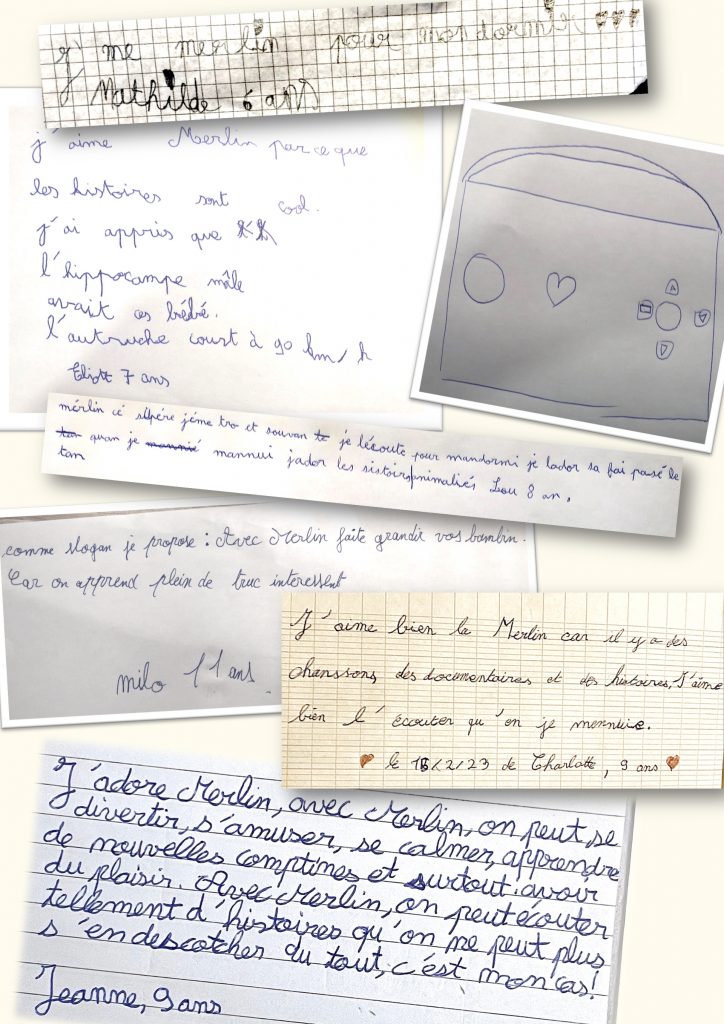 j' me merlin pour mon dormir ♥♥♥
Mathilde 6 ans
j'aime Merlin parce que
les histoires sont cool.
j'ai appris que
l'hippocampe mâle
avait des bébé.
l'autruche court à 90 km/h
Eliott 7 ans
mérlin cé supére jéme tro et souvan je lécoute pour mandormi je lador sa fai pasé le
tan quan je mannui jador les sistoirs animaliés Lou 8 an.
comme slogan je propose : Avec Merlin faite grandir vos bambin.
Car on apprend plein de truc interessent
milo 11 ans.
J'aime bien la Merlin car il y a des
chanssons des documentaires et des histoires. J'aime
bien l'écouter qu'on je mennuie.
♥ le 15/2/23 de Charlotte, 9 ans ♥
J'adore Merlin, avec Merlin, on peut se
divertir, s'amuser, se calmer, apprendre
de nouvelles comptines et surtout : avoir
du plaisir. Avec Merlin, on peut écouter
tellement d'histoires qu'on ne peut plus
s'en descotcher du tout, c'est mon cas !
Jeanne, 9 ans